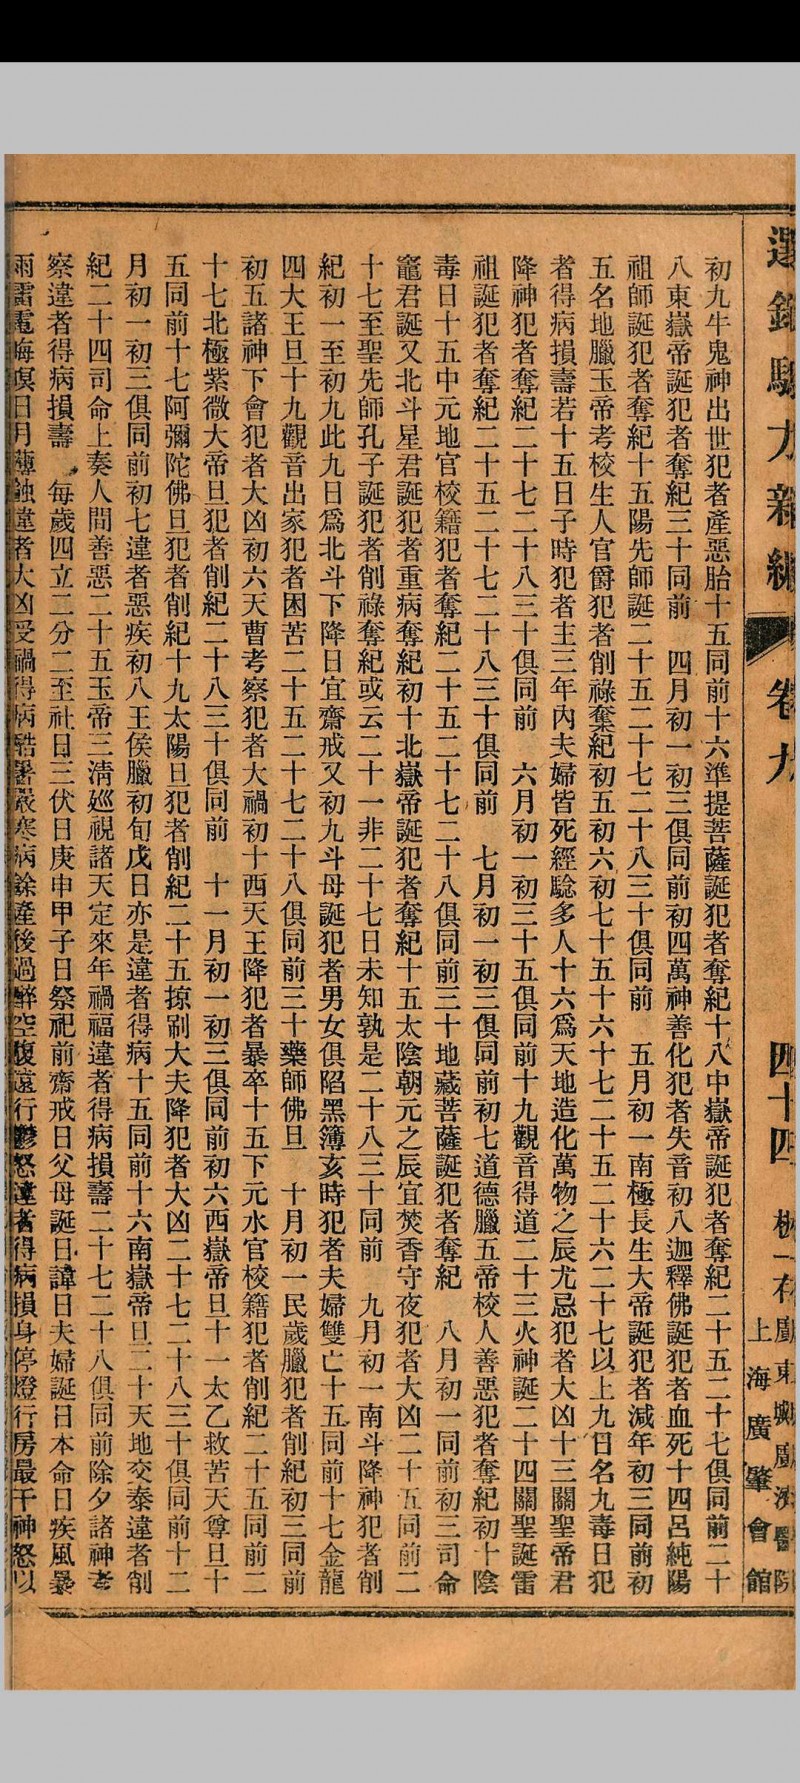 選錄驗方新編 卷九 四十四 板存廣東城廣濟醫院 上海廣肇會館
初九牛鬼神出世犯者產惡胎十五同前十六準提菩薩誕犯者奪紀十八中嶽帝誕犯者奪紀二十五二十七俱同前二十
八東嶽帝誕犯者奪紀三十同前　四月初一初三俱同前初四萬神善化犯者失音初八迦釋佛誕犯者血死十四呂純陽
祖師誕犯者奪紀十五陽先師誕二十五二十七二十八三十俱同前　五月初一南極長生大帝誕犯者減年初三同前初
五名地臘玉帝考校生人官爵犯者削祿奪紀初五初六初七十五十六十七二十五二十六二十七以上九日名九毒日犯
者得病損壽若十五日子時犯者主三年內夫婦皆死經驗多人十六爲天地造化萬物之辰尤忌犯者大凶十三關聖帝君
降神犯者奪紀二十七二十八三十俱同前　六月初一初三十五俱同前十九觀音得道二十三火神誕二十四關聖誕雷
祖誕犯者奪紀二十五二十七二十八三十俱同前　七月初一初三俱同前初七道德臘五帝校人善惡犯者奪紀初十陰
毒日十五中元地官校籍犯者奪紀二十五二十七二十八俱同前三十地藏菩薩誕犯者奪紀　八月初一同前初三司命
竈君誕又北斗星君誕犯者重病奪紀初十北嶽帝誕犯者奪紀十五太陰朝元之辰宜焚香守夜犯者大凶二十五同前二
十七至聖先師孔子誕犯者削祿奪紀或云二十一非二十七日未知孰是二十八三十同前　九月初一南斗降神犯者削
紀初一至初九此九日爲北斗下降日宜齋戒又初九斗母誕犯者男女俱陷黑簿亥時犯者夫婦雙亡十五同前十七金龍
四大王旦十九觀音出家犯者困苦二十五二十七二十八俱同前三十藥師佛旦　十月初一民歲臘犯者削紀初三同前
初五諸神下會犯者大凶初六天曹考察犯者大禍初十西天王降犯者暴卒十五下元水官校籍犯者削紀二十五同前二
十七北極紫微大帝旦犯者削紀二十八三十俱同前　十一月初一初三俱同前初六西嶽帝旦十一太乙救苦天尊旦十
五同前十七阿彌陀佛旦犯者削紀十九太陽旦犯者削紀二十五掠刷大夫降犯者大凶二十七二十八三十俱同前十二
月初一初三俱同前初七違者惡疾初八王侯臘初旬戊日亦是違者得病十五同前十六南嶽帝旦二十天地交泰違者削
紀二十四司命上奏人間善惡二十五玉帝三淸廵視諸天定來年禍福違者得病損壽二十七二十八俱同前除夕諸神考
察違者得病損壽　每歲四立二分二至社日三伏日庚申甲子日祭祀前齋戒日父母誕日諱日夫婦誕日本命日疾風暴
雨雷電晦暝日月薄蝕違者大凶受禍得病酷暑嚴寒病餘產後過醉空腹遠行鬱怒違者得病損身停燈行房最干神怒以